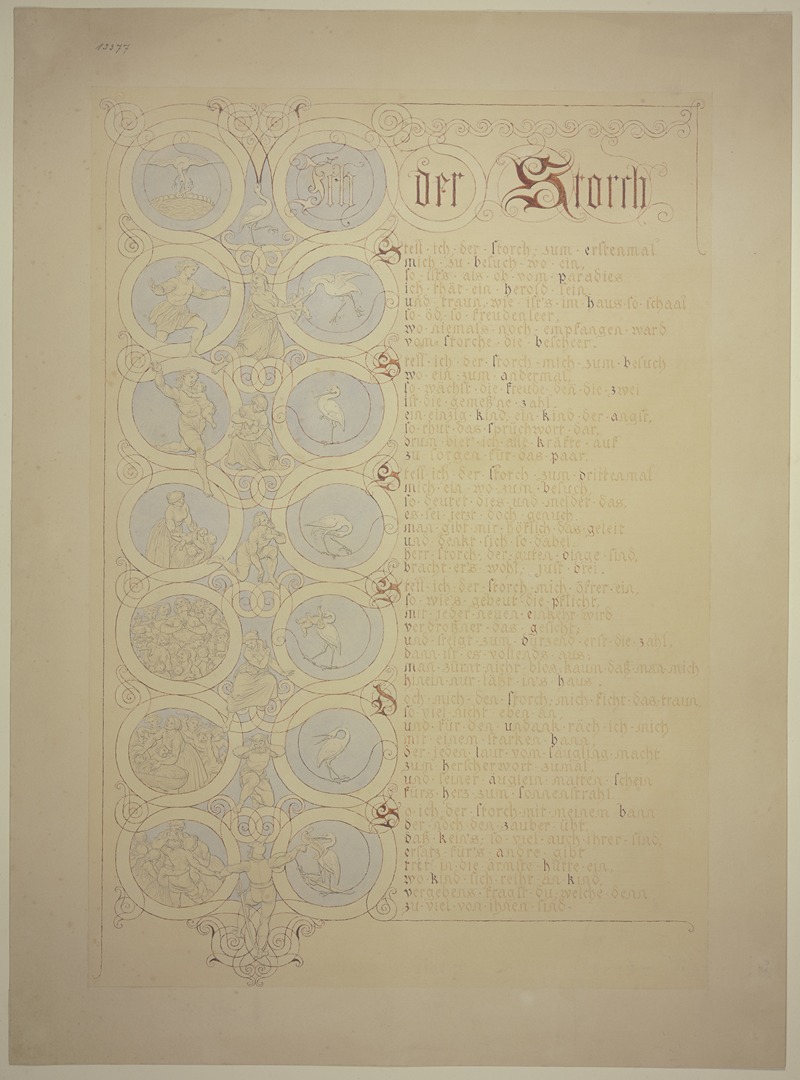 15377
Ich der Storch
Stell·ich·der·storch·zum·erstenmal
mich·zu·besuch·wo·ein,
so·ist's·als·ob·vom·paradies
ich·thät·ein·herold·sein,
und·traun·wie·ist's·im·haus·so·schaal
so·öd·so·freudenleer,
wo·niemals·noch·empfangen·ward
vom·storche·die·bescheer.
Stell·ich·der·storch·mich·zum·besuch
wo·ein·zum·andermal,
so·wächst·die·freude·den·die·zwei
ist·die·gemeß'ne·zahl.
ein·einzig·kind,·ein·kind·der·angst,
so·thut·das·sprüchwort·dar,
drum·biet·ich·alle·kräfte·auf
zu·sorgen·für·das·paar.
Stell·ich·der·storch·zum·drittenmal
mich·ein·wo·zum·besuch,
so·deutet·dies·und·meldet·das,
es·sei·jetzt·doch·genuch.
man·gibt·mir·höflich·das·geleit
und·denkt·sich·so·dabei,
herr·storch,·der·guten·dinge·sind,
bracht·er's·wohl,·just·drei.
Stell·ich·der·storch·mich·öfter·ein,
so·wie's·gebeut·die·pflicht,
mit·jeder·neuen·einkehr·wird
verdroßner·das·gesicht;
und·steigt·zum·dutzend·erst·die·zahl,
dann·ist·es·vollends·aus,
man·zürnt·nicht·blos,·kaum·daß·man·mich
hinein·nur·läßt·in's·haus.
Doch·mich·den·storch,·mich·ficht·das·traun,
so·viel·nicht·eben·an,
und·für·den·undank·räch·ich·mich
mit·einem·starken·bann:
der·jeden·laut·vom·säugling·macht
zum·herscherwort·zumal,
und·seiner·äuglein·matten·schein
fürs·herz·zum·sonnenstrahl.
So·ich·der·storch·mit·meinem·bann
der·noch·den·zauber·übt,
daß·kein's,·so·viel·auch·ihrer·sind,
ersatz·für's·andre·gibt
tret·in·die·ärmste·hütte·ein,
wo·kind·sich·reiht·an·kind,
vergebens·fragst·du,·welche·denn
zu·viel·von·ihnen·sind.